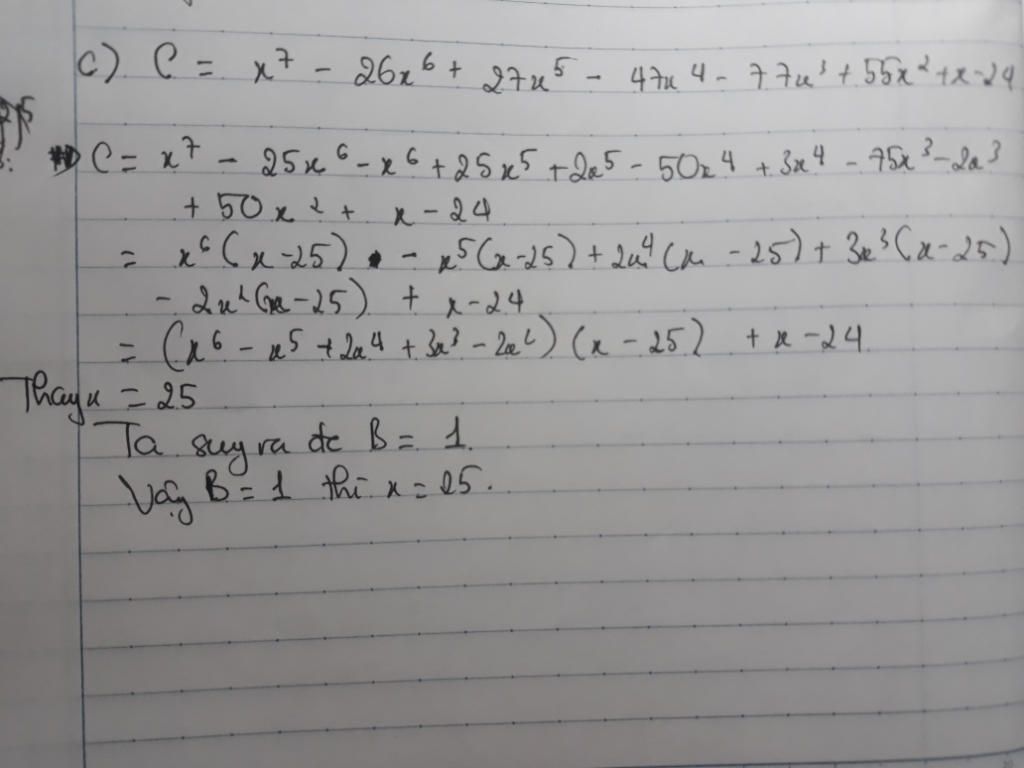 c) C = x⁷ - 26x⁶ + 27x⁵ - 47x⁴ - 77x³ + 55x² + x - 24
C = x⁷ - 25x⁶ - x⁶ + 25x⁵ + 2x⁵ - 50x⁴ + 3x⁴ - 75x³ - 2x³
+ 50x² + x - 24
= x⁶(x-25) - x⁵(x-25) + 2x⁴(x - 25) + 3x³(x-25)
- 2x²(x-25) + x-24
= (x⁶ - x⁵ + 2x⁴ + 3x³ - 2x²) (x - 25) + x - 24
Thay x = 25
Ta suy ra dc B = 1.
Vậy B = 1 thì x = 25.